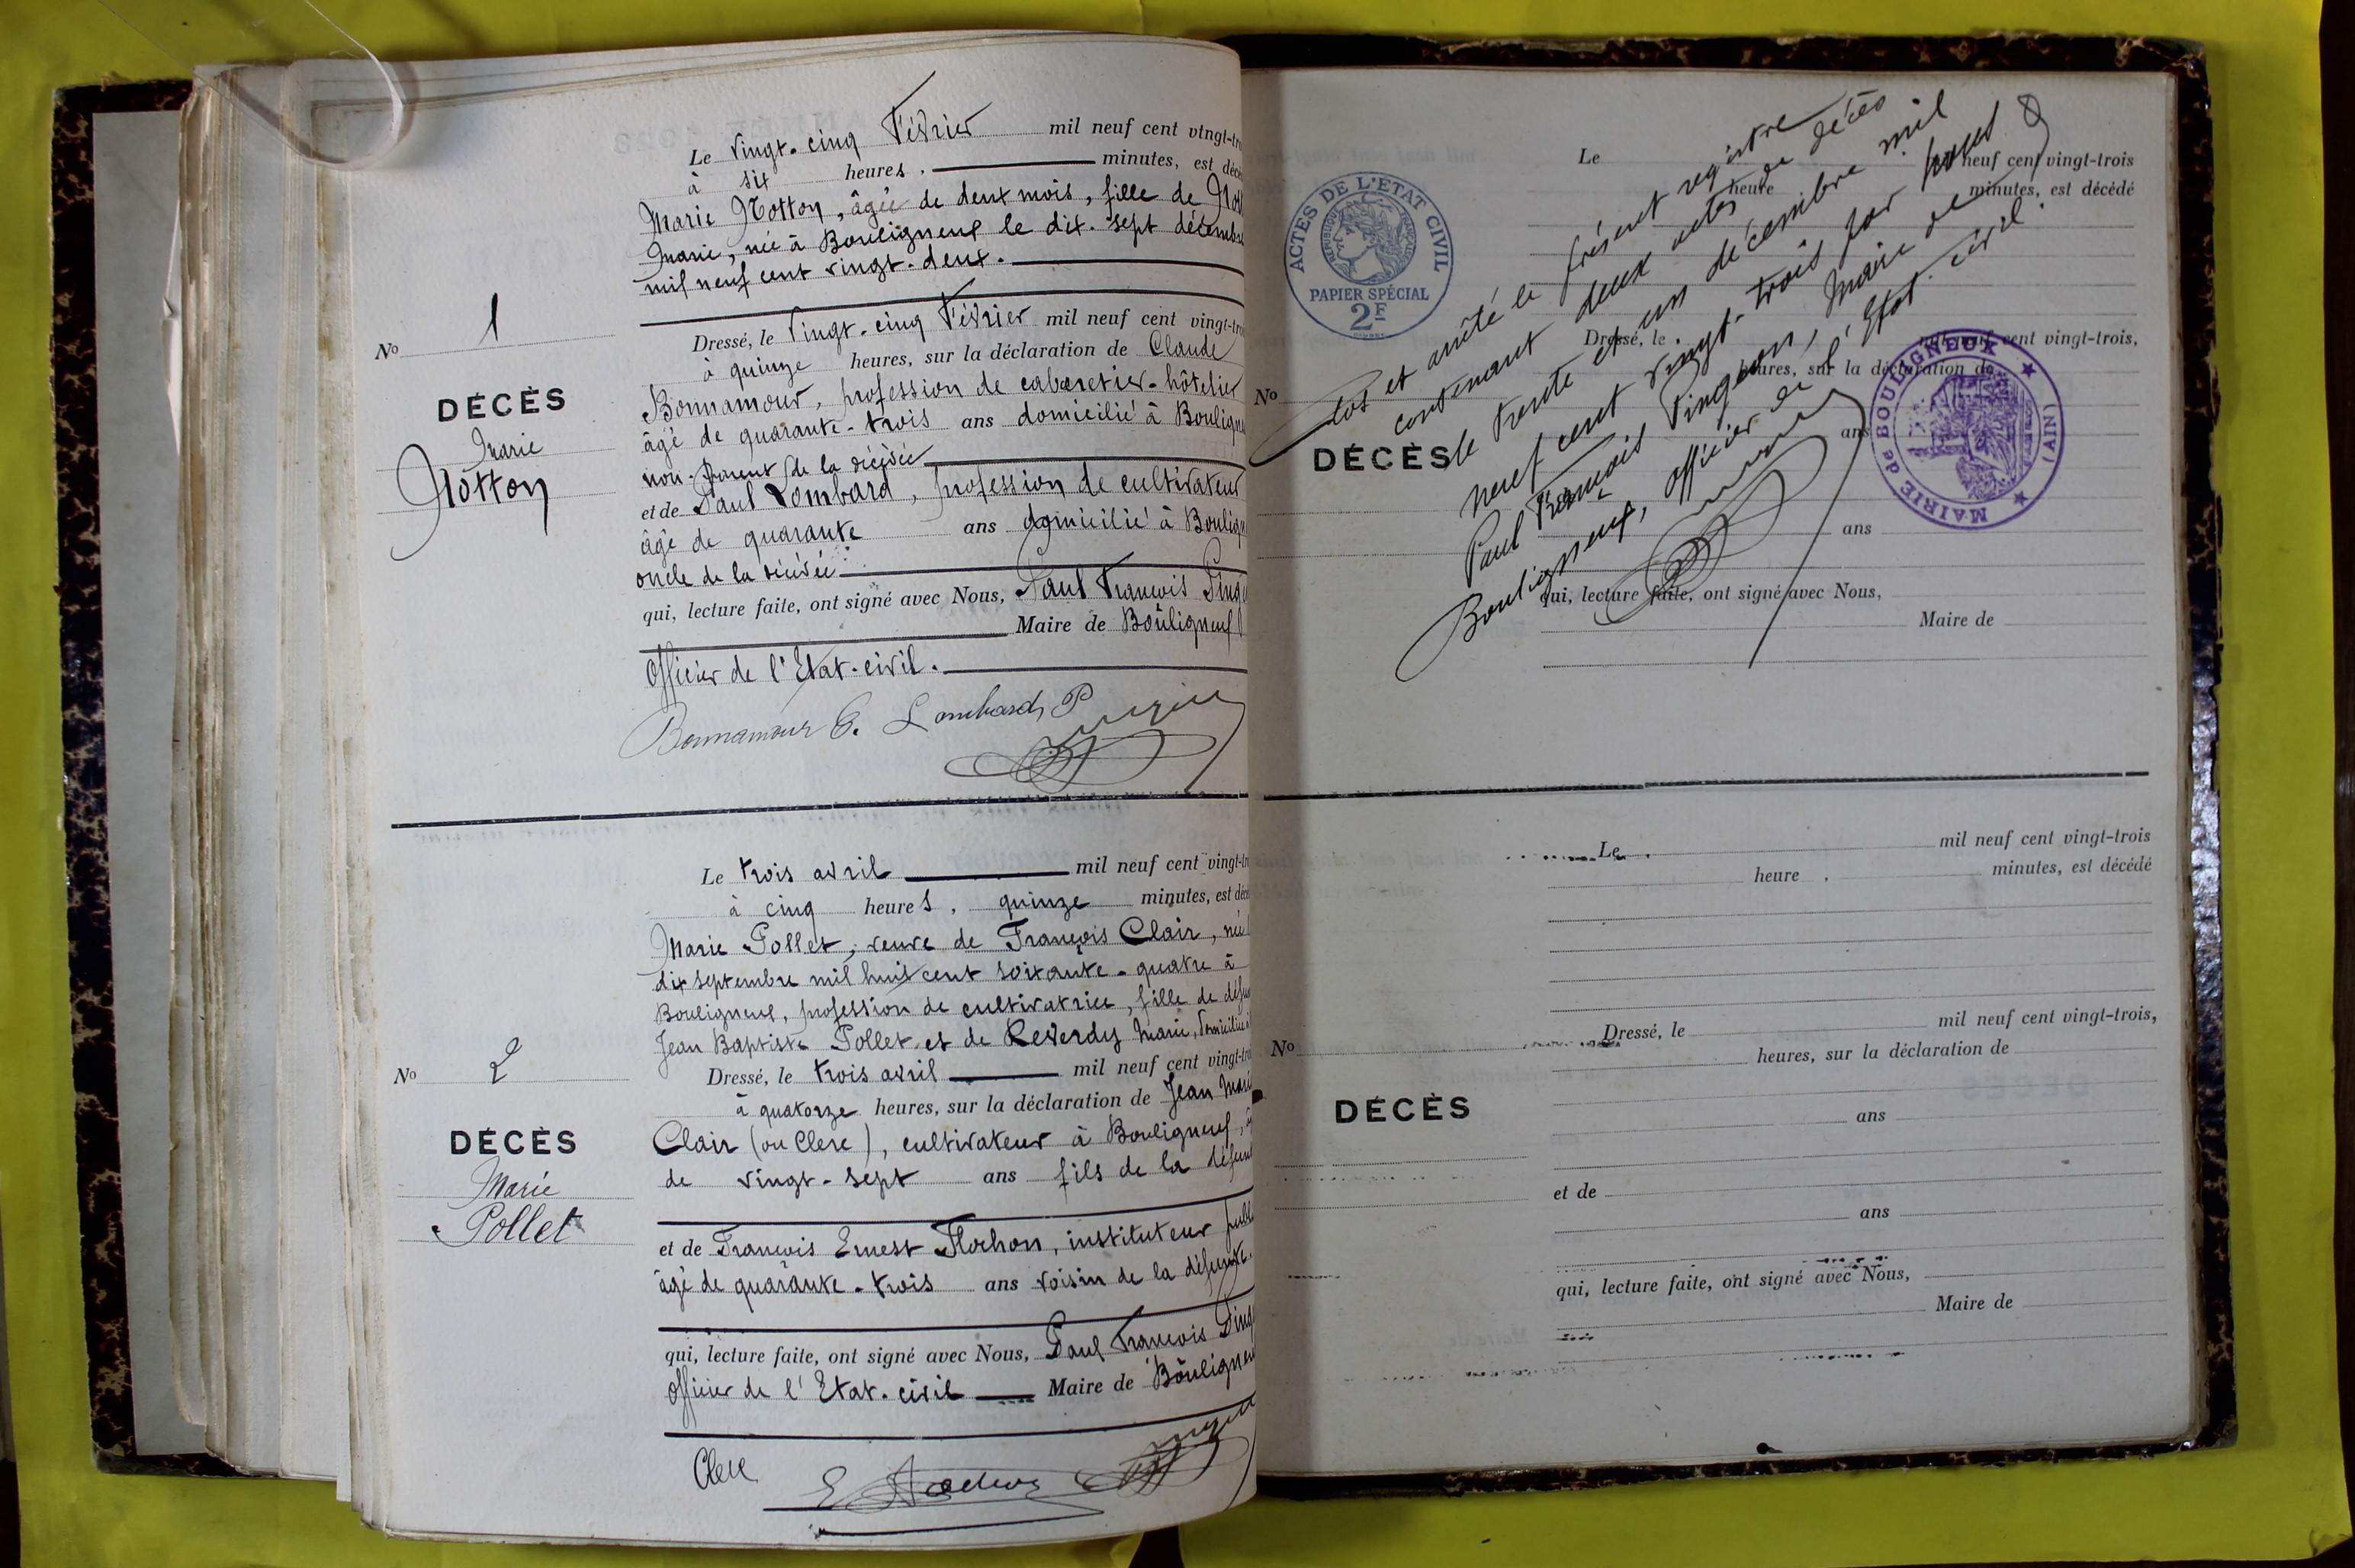 Le vingt-cinq Février mil neuf cent vingt-tro
à six heures, minutes, est décé
Marie Notton, âgée de deux mois, fille de Nott
Marie, née à Bouligneux le dix-sept décembre
mil neuf cent vingt-deux.
Dressé, le vingt-cinq Février mil neuf cent vingt-tro
à quinze heures, sur la déclaration de Claude
Nº 1
DÉCÈS
Marie
Notton
Bonnamour, profession de cabaretier-hôtelier
âgé de quarante-trois ans domicilié à Bouligne
non-parent de la décédée
et de Paul Lombard, profession de cultivateur
âgé de quarante ans domicilié à Bouligne
oncle de la décédée
qui, lecture faite, ont signé avec Nous, Paul François Pinge
Maire de Bouligneux
Officier de l'Etat-civil.
Bonnamour C. Lombard P
Le trois avril mil neuf cent vingt-tro
à cinq heures, quinze minutes, est décé
Marie Pollet, veuve de François Clair, née
dix septembre mil huit cent soixante-quatre à
Bouligneux, profession de cultivatrice, fille de défu
Jean Baptiste Pollet et de Reverdy Marie, domiciliée
Nº 2
DÉCÈS
Marie
Pollet
Dressé, le trois avril mil neuf cent vingt-tro
à quatorze heures, sur la déclaration de Jean Marie
Clair (ou Clerc), cultivateur à Bouligneux, â
de vingt-sept ans fils de la défunt
et de François Ernest Flochon, instituteur publi
âgé de quarante-trois ans voisin de la défunte.
qui, lecture faite, ont signé avec Nous, Paul François Ping
Officier de l'Etat-civil Maire de Bouligneu
Clerc E Flochon
ACTES DE L'ETAT CIVIL
REPUBLIQUE FRANÇAISE
PAPIER SPÉCIAL
2F
Le neuf cent vingt-trois
heure minutes, est décédé
Dressé, le neuf cent vingt-trois,
heures, sur la déclaration de
Nº
DÉCÈS
ans
ans
qui, lecture faite, ont signé avec Nous,
Maire de
Clos et arrêté le présent registre
contenant deux actes de décès
le trente et un décembre mil
neuf cent vingt-trois par nous
Paul François Pingeon, Maire de
Bouligneux, officier de l'Etat-civil.
MAIRIE de BOULIGNEUX
(AIN)
Le mil neuf cent vingt-trois
heure, minutes, est décédé
Dressé, le mil neuf cent vingt-trois,
heures, sur la déclaration de
Nº
DÉCÈS
ans
et de
ans
qui, lecture faite, ont signé avec Nous,
Maire de